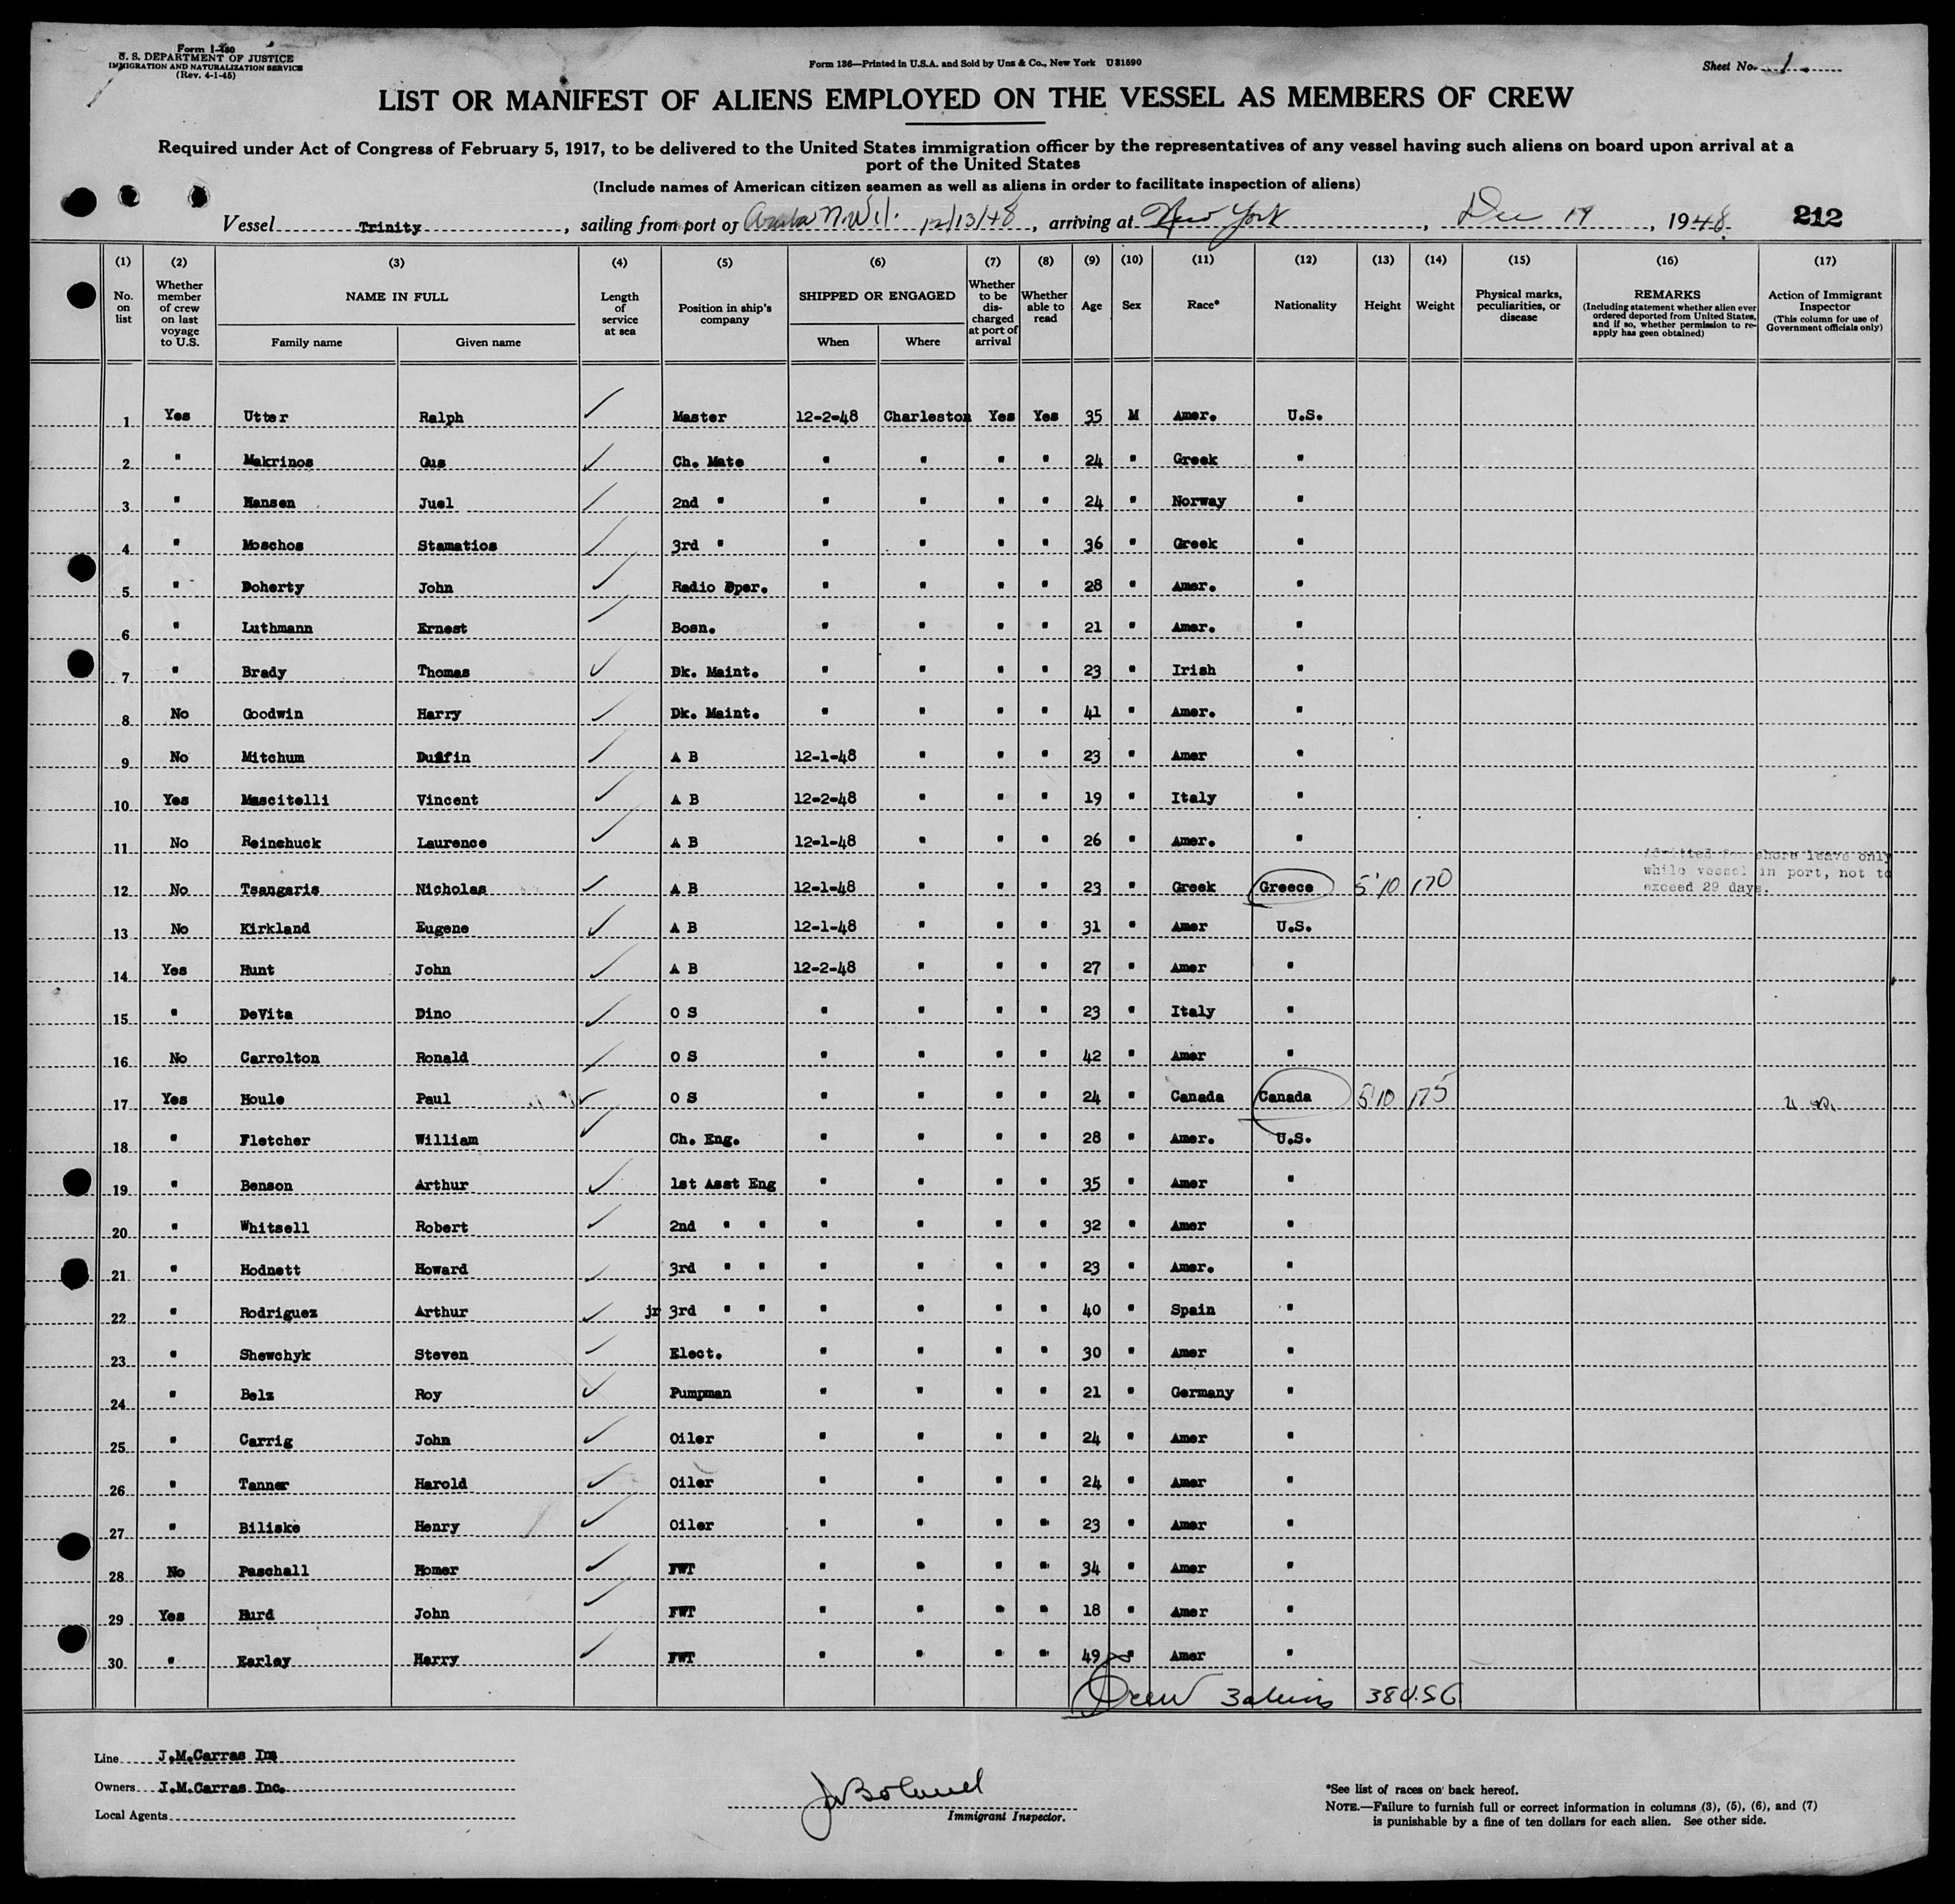 Form I-480
U. S. DEPARTMENT OF JUSTICE
IMMIGRATION AND NATURALIZATION SERVICE
(Rev. 4-1-45)
Form 136—Printed in U.S.A. and Sold by Unz & Co., New York U31590
Sheet No. 1
LIST OR MANIFEST OF ALIENS EMPLOYED ON THE VESSEL AS MEMBERS OF CREW
Required under Act of Congress of February 5, 1917, to be delivered to the United States immigration officer by the representatives of any vessel having such aliens on board upon arrival at a
port of the United States
(Include names of American citizen seamen as well as aliens in order to facilitate inspection of aliens)
Vessel Trinity, sailing from port of Aruba N.W.I. 12/13/48, arriving at New York, Dec 19, 1948. 212
(1) (2) (3) (4) (5) (6) (7) (8) (9) (10) (11) (12) (13) (14) (15) (16) (17)
No. on list
Whether member of crew on last voyage to U.S.
NAME IN FULL
Family name
Given name
Length of service at sea
Position in ship's company
SHIPPED OR ENGAGED
When
Where
Whether to be discharged at port of arrival
Whether able to read
Age
Sex
Race*
Nationality
Height
Weight
Physical marks, peculiarities, or disease
REMARKS
(Including statement whether alien ever ordered deported from United States, and if so, whether permission to reapply has geen obtained)
Action of Immigrant Inspector
(This column for use of Government officials only)
1 Yes Utter Ralph Master 12-2-48 Charleston Yes Yes 35 M Amer. U.S.
2 " Makrinos Gus Ch. Mate " " " " 24 " Greek "
3 " Hansen Juel 2nd " " " " " 24 " Norway "
4 " Moschos Stamatios 3rd " " " " " 36 " Greek "
5 " Doherty John Radio Oper. " " " " 28 " Amer. "
6 " Luthmann Ernest Bosn. " " " " 21 " Amer. "
7 " Brady Thomas Dk. Maint. " " " " 23 " Irish "
8 No Goodwin Harry Dk. Maint. " " " " 41 " Amer. "
9 No Mitchum Duffin A B 12-1-48 " " " 23 " Amer "
10 Yes Mascitelli Vincent A B 12-2-48 " " " 19 " Italy "
11 No Reinchuck Laurence A B 12-1-48 " " " 26 " Amer. "
12 No Tsangaris Nicholas A B 12-1-48 " " " 23 " Greek Greece 5'10 170
Admitted for shore leave only
while vessel in port, not to
exceed 29 days.
13 No Kirkland Eugene A B 12-1-48 " " " 31 " Amer U.S.
14 Yes Hunt John A B 12-2-48 " " " 27 " Amer "
15 " DeVita Dino O S " " " " 23 " Italy "
16 No Carrolton Ronald O S " " " " 42 " Amer "
17 Yes Houle Paul O S " " " " 24 " Canada Canada 5'10 175
18 " Fletcher William Ch. Eng. " " " " 28 " Amer. U.S.
19 " Benson Arthur 1st Asst Eng " " " " 35 " Amer "
20 " Whitsell Robert 2nd " " " " " " 32 " Amer "
21 " Hodnett Howard 3rd " " " " " " 23 " Amer. "
22 " Rodriguez Arthur jr 3rd " " " " " " 40 " Spain "
23 " Shewchyk Steven Elect. " " " " 30 " Amer "
24 " Belz Roy Pumpman " " " " 21 " Germany "
25 " Carrig John Oiler " " " " 24 " Amer "
26 " Tanner Harold Oiler " " " " 24 " Amer "
27 " Biliske Henry Oiler " " " " 23 " Amer "
28 No Paschall Homer FWT " " " " 34 " Amer "
29 Yes Hurd John FWT " " " " 18 " Amer "
30 " Earley Harry FWT " " " " 49 " Amer "
Crew 3 aliens 38 U.S.C.
Line J.M.Carras Inc
Owners J.M.Carras Inc.
Local Agents
Immigrant Inspector.
*See list of races on back hereof.
NOTE.—Failure to furnish full or correct information in columns (3), (5), (6), and (7)
is punishable by a fine of ten dollars for each alien. See other side.